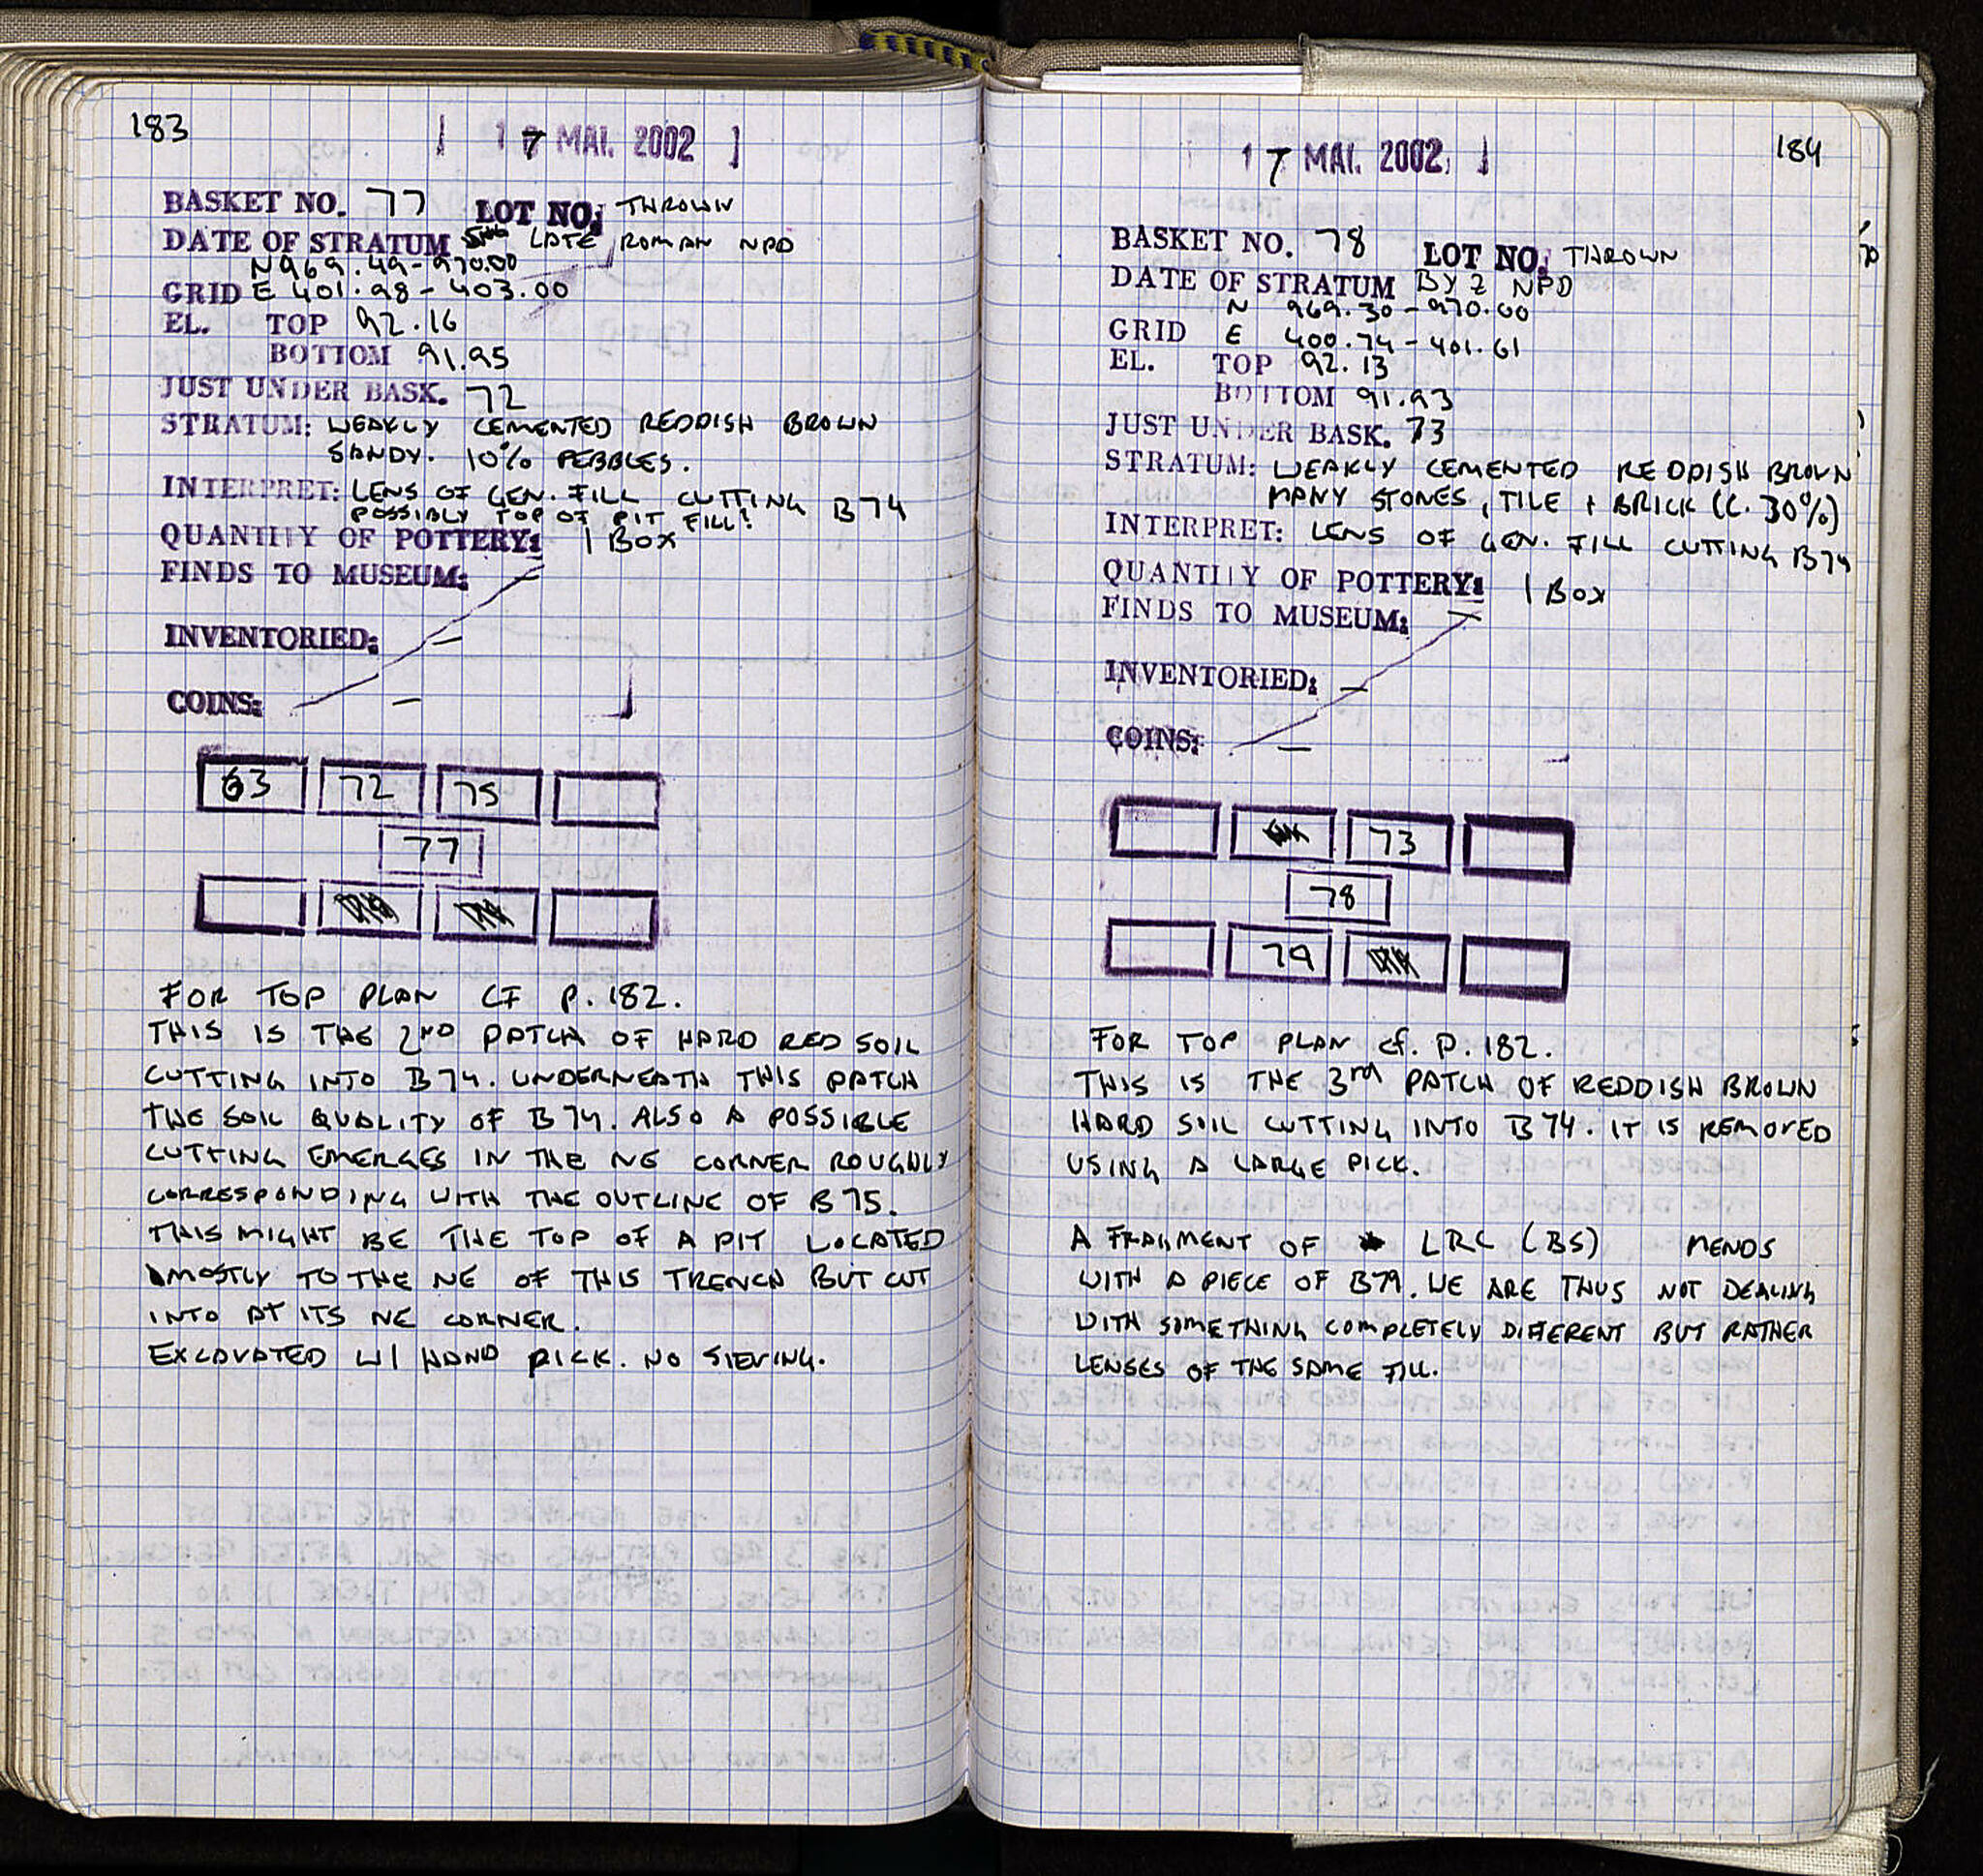 183
17 MAI. 2002
BASKET NO. 77 LOT NO. THROWN
DATE OF STRATUM LATE ROMAN NPD
N 969.49-970.00
GRID E 401.98-403.00
EL. TOP 92.16
BOTTOM 91.95
JUST UNDER BASK. 72
STRATUM: WEAKLY CEMENTED REDDISH BROWN
SANDY. 10% PEBBLES.
INTERPRET: LENS OF GEN. FILL CUTTING B74
POSSIBLY TOP OF PIT FILL!
QUANTITY OF POTTERY: 1 BOX
FINDS TO MUSEUM: —
INVENTORIED: —
COINS: —
63 72 75
77
FOR TOP PLAN CF P. 182.
THIS IS THE 2ND PATCH OF HARD RED SOIL
CUTTING INTO B74. UNDERNEATH THIS PATCH
THE SOIL QUALITY OF B74. ALSO A POSSIBLE
CUTTING EMERGES IN THE NE CORNER ROUGHLY
CORRESPONDING WITH THE OUTLINE OF B75.
THIS MIGHT BE THE TOP OF A PIT LOCATED
MOSTLY TO THE NE OF THIS TRENCH BUT CUT
INTO AT ITS NE CORNER.
EXCAVATED W/ HAND PICK. NO SIEVING.
184
17 MAI. 2002
BASKET NO. 78 LOT NO. THROWN
DATE OF STRATUM BYZ NPD
N 969.30-970.00
GRID E 400.74-401.61
EL. TOP 92.13
BOTTOM 91.93
JUST UNDER BASK. 73
STRATUM: WEAKLY CEMENTED REDDISH BROWN
MANY STONES, TILE + BRICK (C. 30%)
INTERPRET: LENS OF GEN. FILL CUTTING B74
QUANTITY OF POTTERY: 1 BOX
FINDS TO MUSEUM: —
INVENTORIED: —
COINS: —
73
78
79
FOR TOP PLAN cf. P. 182.
THIS IS THE 3rd PATCH OF REDDISH BROWN
HARD SOIL CUTTING INTO B74. IT IS REMOVED
USING A LARGE PICK.
A FRAGMENT OF LRC (BS) MENDS
WITH A PIECE OF B79. WE ARE THUS NOT DEALING
WITH SOMETHING COMPLETELY DIFFERENT BUT RATHER
LENSES OF THE SAME FILL.